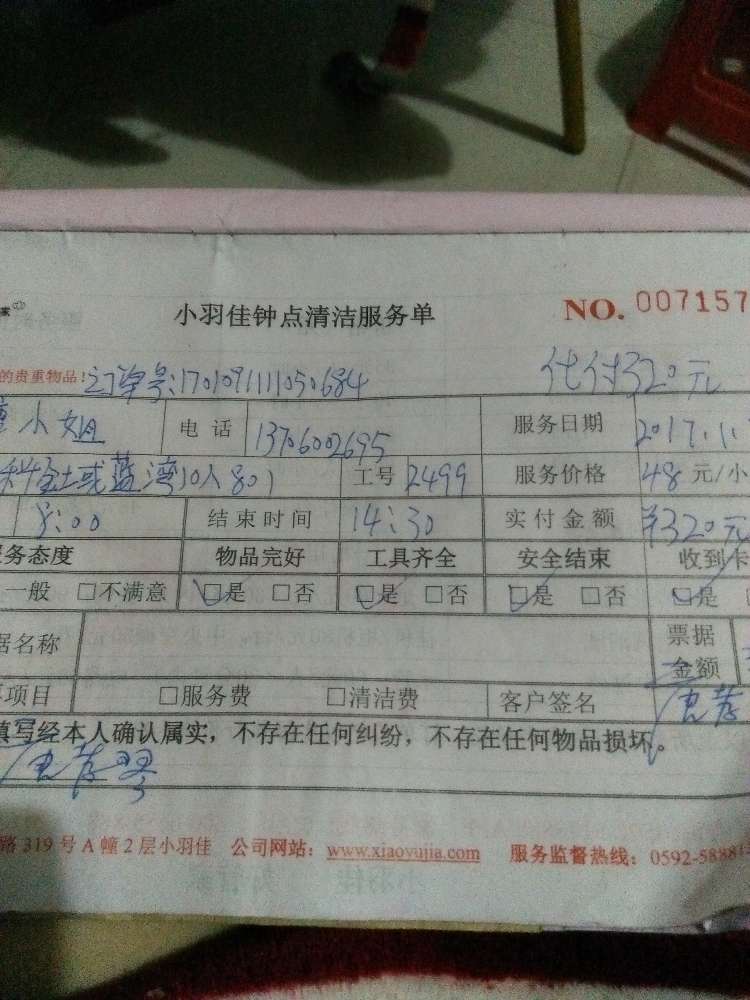 小羽佳钟点清洁服务单 NO. 007157
的贵重物品! 订单号:1701091111050684 代付320元
小姐 电话 13706002695 服务日期 2017.1.
金域蓝湾10#801 工号 2499 服务价格 48元/小
8:00 结束时间 14:30 实付金额 ¥320元
务态度 物品完好 工具齐全 安全结束 收到卡
一般 □不满意 □是 □否 □是 □否 □是 □否 □是
据名称 票据
金额
项目 □服务费 □清洁费 客户签名
填写经本人确认属实,不存在任何纠纷,不存在任何物品损坏。
路319号A幢2层小羽佳 公司网站:www.xiaoyujia.com 服务监督热线:0592-5888